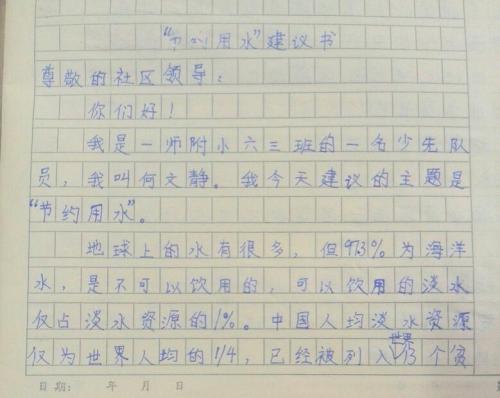 “节约用水”建议书
尊敬的社区领导：
你们好！
我是一师附小六三班的一名少先队
员，我叫何文静。我今天建议的主题是
“节约用水”。
地球上的水有很多，但97.3%为海洋
水，是不可以饮用的，可以饮用的淡水
仅占淡水资源的1%。中国人均淡水资源
仅为世界人均的1/4，已经被列入世界13个贫
日期： 年 月 日